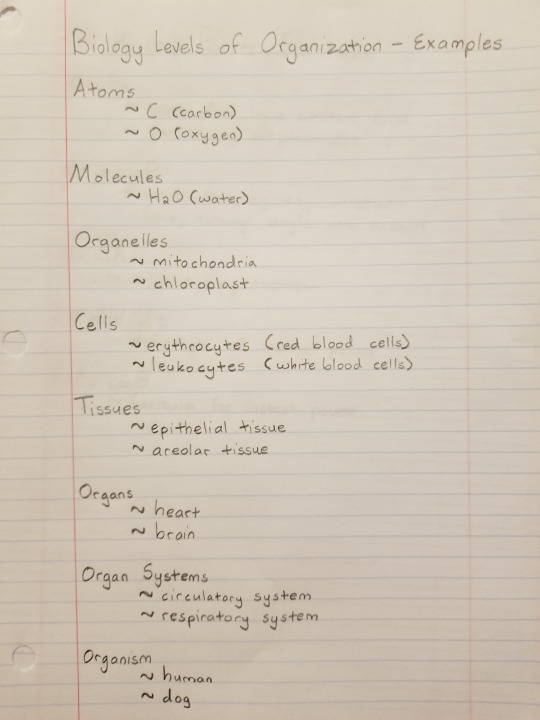 Biology Levels of Organization - Examples
Atoms
~ C (carbon)
~ O (oxygen)
Molecules
~ H2O (water)
Organelles
~ mitochondria
~ chloroplast
Cells
~ erythrocytes (red blood cells)
~ leukocytes (white blood cells)
Tissues
~ epithelial tissue
~ areolar tissue
Organs
~ heart
~ brain
Organ Systems
~ circulatory system
~ respiratory system
Organism
~ human
~ dog